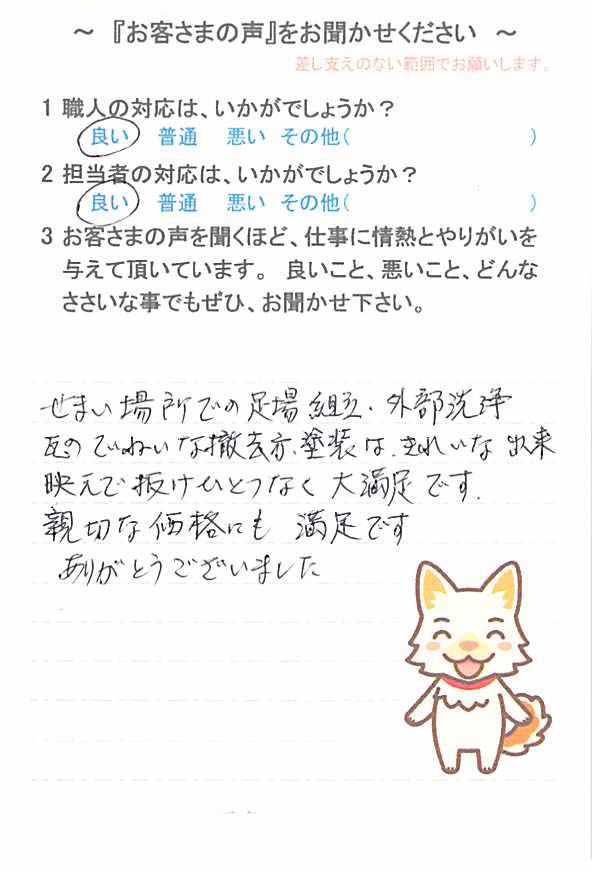 ～ 『お客さまの声』をお聞かせください ～
差し支えのない範囲でお願いします。
1 職人の対応は、いかがでしょうか？
良い 普通 悪い その他( )
2 担当者の対応は、いかがでしょうか？
良い 普通 悪い その他( )
3 お客さまの声を聞くほど、仕事に情熱とやりがいを
与えて頂いています。 良いこと、悪いこと、どんな
ささいな事でもぜひ、お聞かせ下さい。
せまい場所での足場組立・外部洗浄
瓦のていねいな撤去亦、塗装は、きれいな出来
映えで抜けひとつなく大満足です.
親切な価格にも 満足です
ありがとうございました